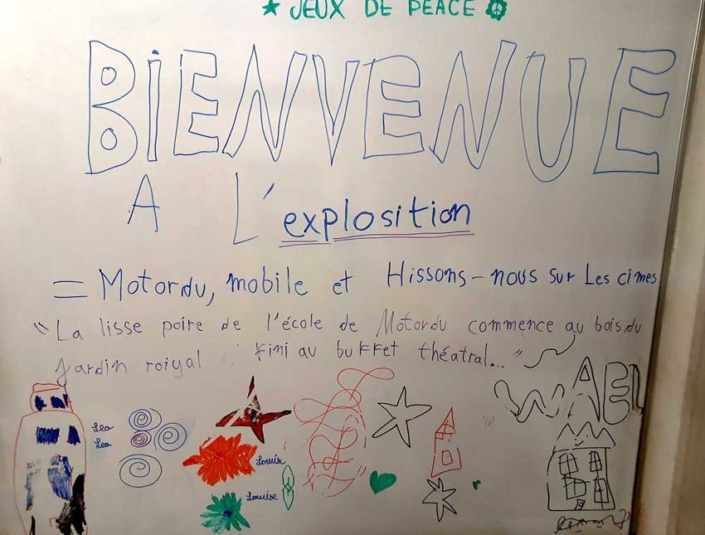 ★ JEUX DE PEACE
BIENVENUE
A L'explosition
= Motordu, mobile et Hissons-nous sur Les cimes
"La lisse poire de l'école de Motordu commence au bois du
jardin roiyal fini au buffet théatral..."
WAEL
Leo
Lea
Louise
Louise